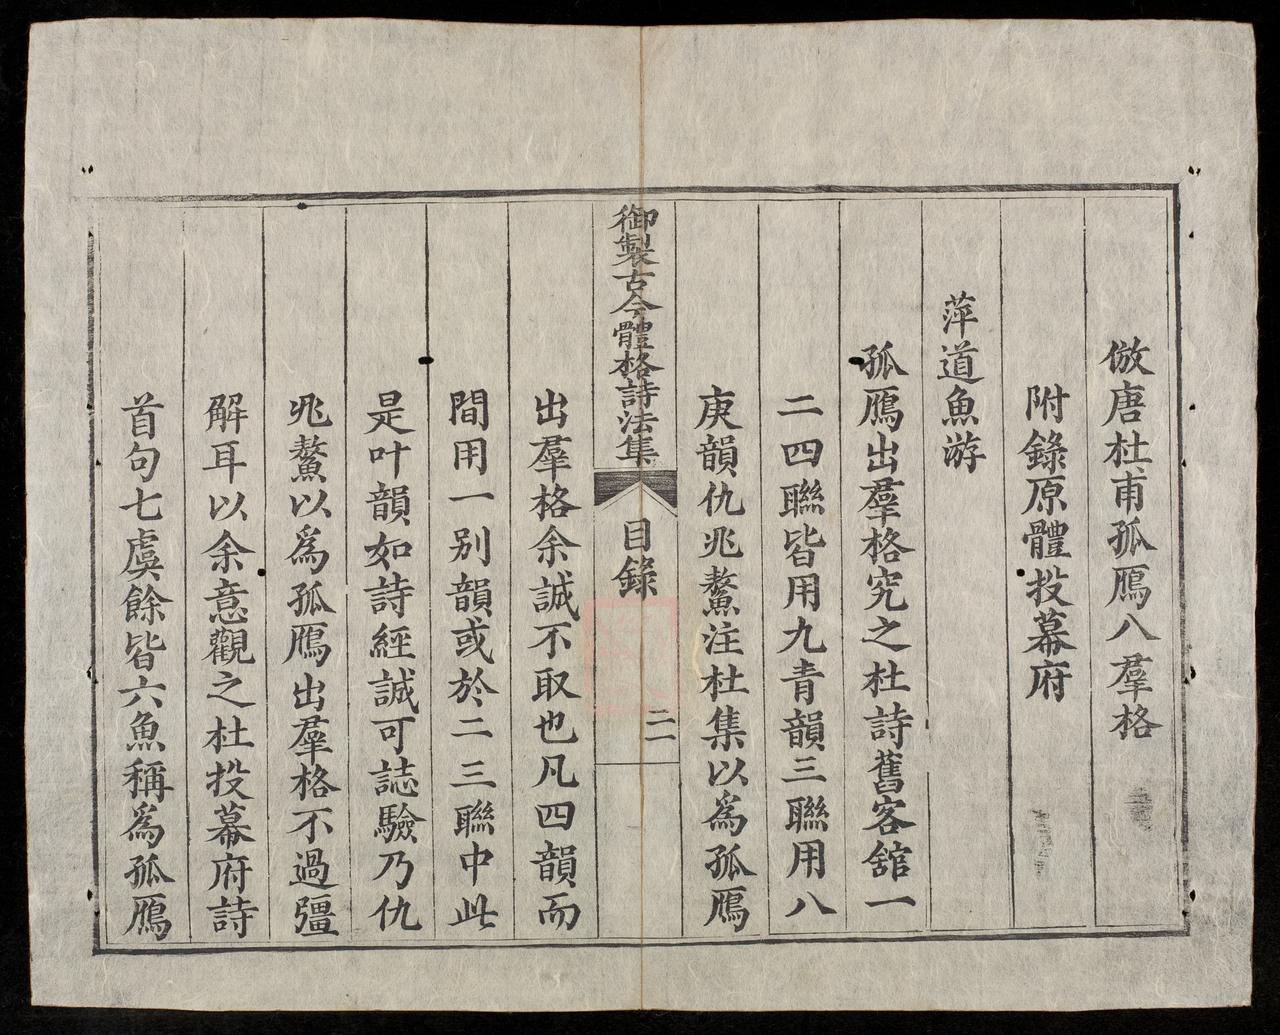 倣唐杜甫孤鴈八羣格
附錄原體投幕府
萍道魚游
孤鴈出羣格究之杜詩舊客舘一
二四聯皆用九青韻三聯用八
庚韻仇兆鰲注杜集以爲孤鴈
御製古今體格詩法集
目錄
二
出羣格余誠不取也凡四韻而
間用一别韻或於二三聯中此
是叶韻如詩經誠可誌驗乃仇
兆鰲以爲孤鴈出羣格不過彊
解耳以余意觀之杜投幕府詩
首句七虞餘皆六魚稱爲孤鴈